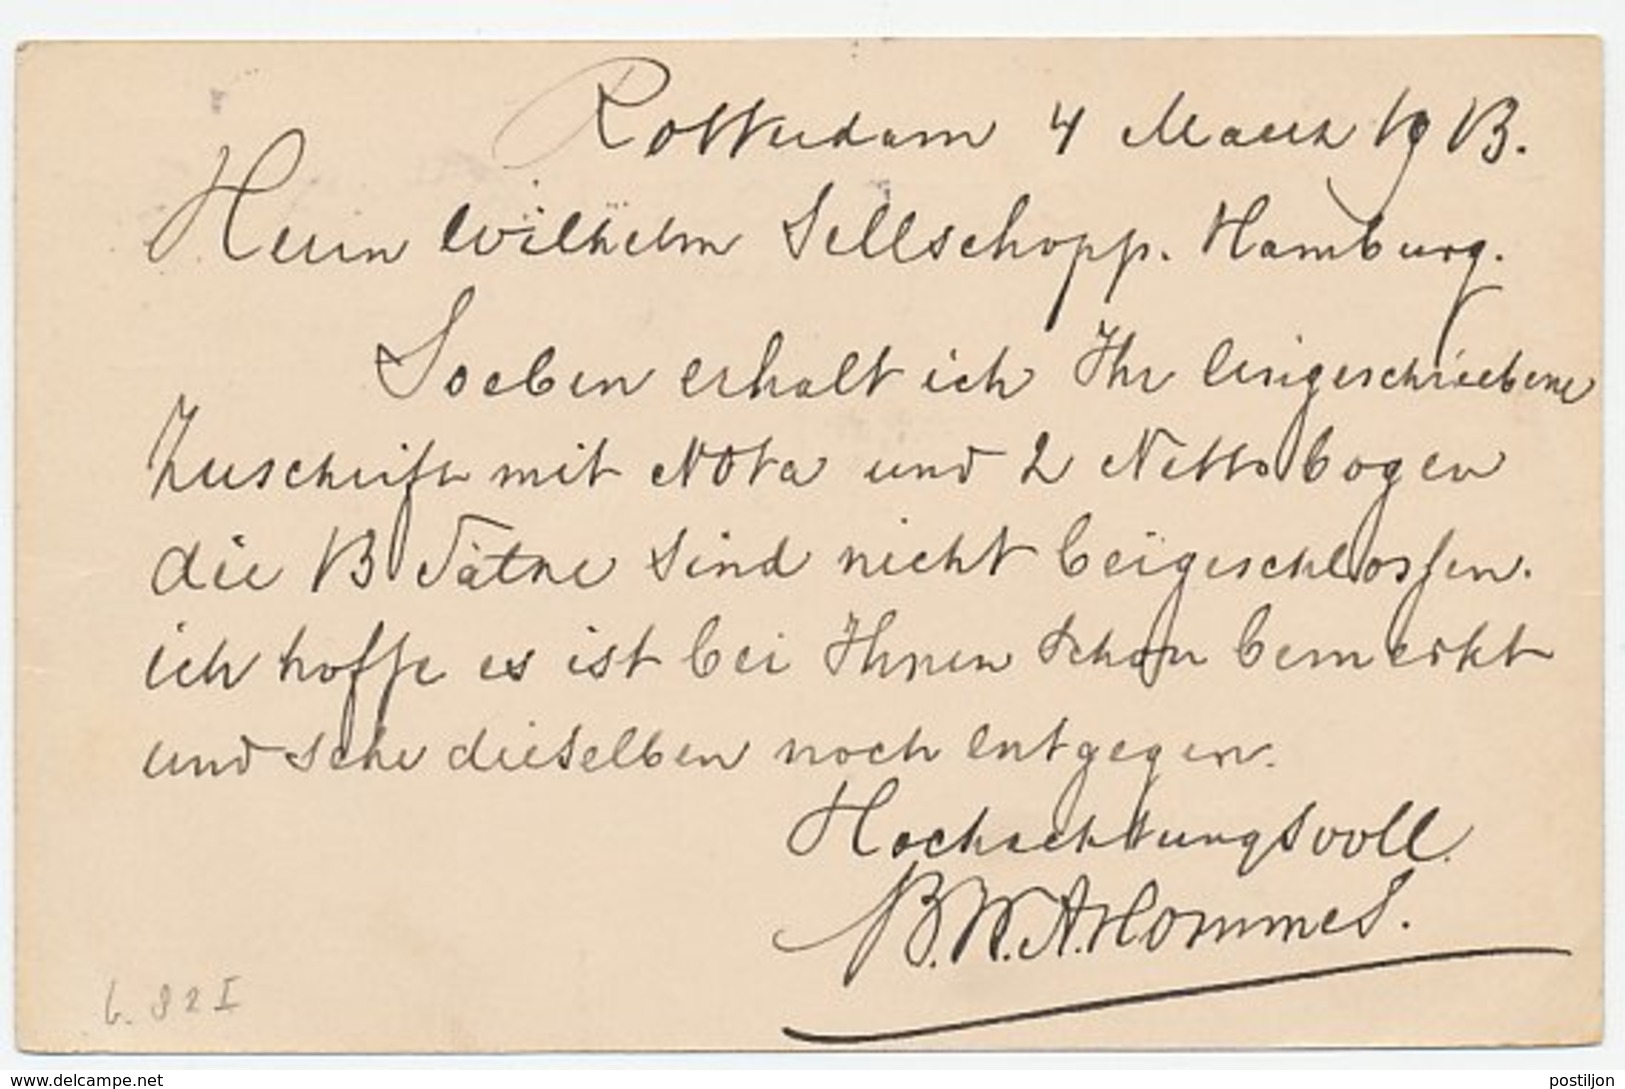 Rotterdam 4 Maerz 1913.
Herrn Wilhelm Sellschopp. Hamburg.
Soeben erhalt ich Ihr eingeschriebene
Zuschrift mit Nota und 2 Nettobogen
die B Tätne sind nicht beigeschlossen.
ich hoffe es ist bei Ihnen schon bemerkt
und sehe dieselben noch entgegen.
Hochachtungsvoll.
B.W.A. Hommes.
6. 82 I
www.delcampe.net
postiljon